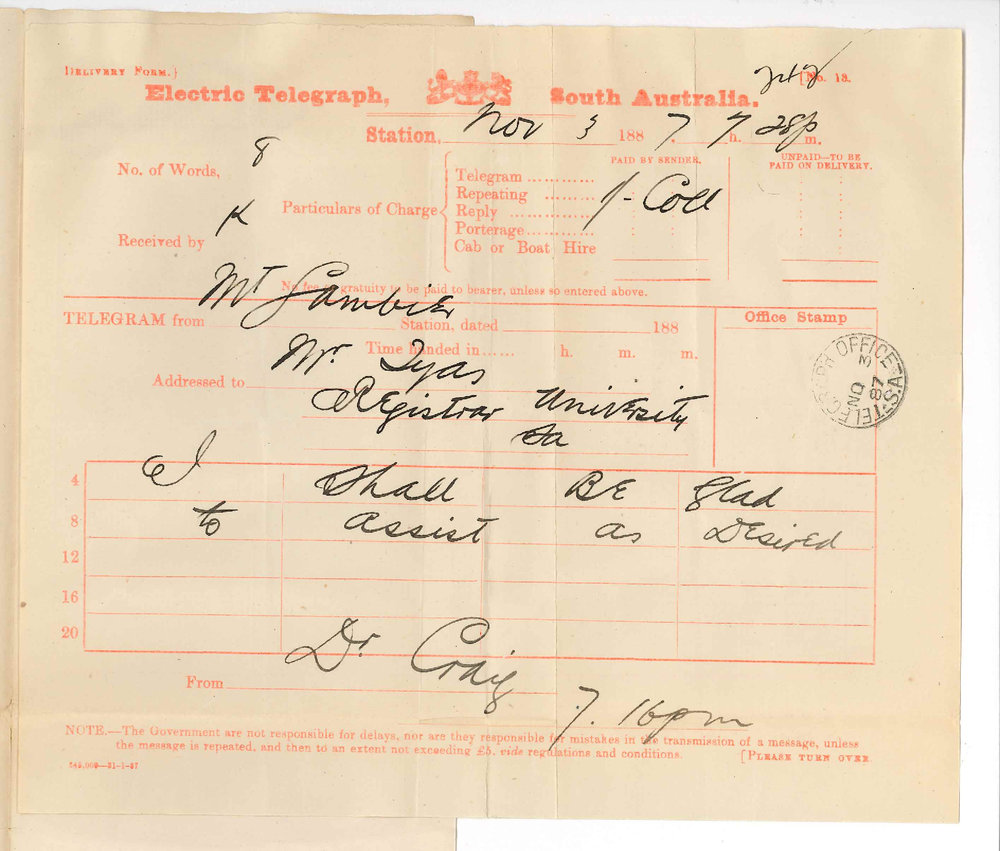 DELIVERY FORM.} [No. 13.
Electric Telegraph, South Australia.
Station, Nov 3 1887 7 h. 28p m.
No. of Words, 8
Received by K
Particulars of Charge
PAID BY SENDER.
UNPAID—TO BE PAID ON DELIVERY.
Telegram ............
Repeating ............
Reply ............
Porterage............
Cab or Boat Hire
1/- Coll
No fee or gratuity to be paid to bearer, unless so entered above.
TELEGRAM from Mt Gambier Station, dated 188
Office Stamp
Time handed in...... h. m. m.
Addressed to Mr. Tyas
Registrar University
Sa
TELEGRAPH OFFICE S.A.
NO 3
87
4 I Shall BE glad
8 to assist as DEsirEd
12
16
20
From Dr. Craig
7. 16pm
NOTE.—The Government are not responsible for delays, nor are they responsible for mistakes in the transmission of a message, unless
the message is repeated, and then to an extent not exceeding £5. vide regulations and conditions. [PLEASE TURN OVER